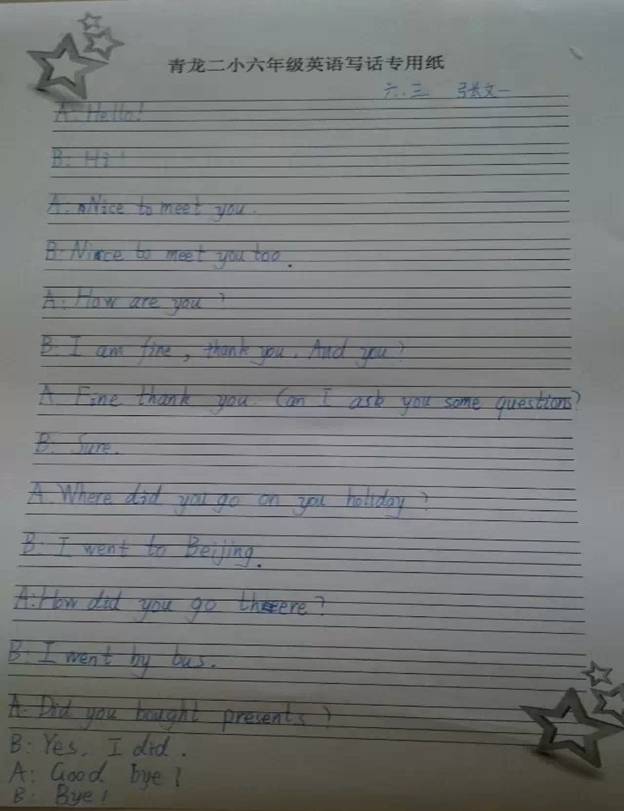 青龙二小六年级英语写话专用纸
六.三 张文一
A: Hello!
B: Hi!
A: Nice to meet you.
B: Nice to meet you too.
A: How are you?
B: I am fine, thank you. And you?
A: Fine thank you. Can I ask you some questions?
B: Sure.
A: Where did you go on you holiday?
B: I went to Beijing.
A: How did you go there?
B: I went by bus.
A: Did you bought presents?
B: Yes. I did.
A: Good bye!
B: Bye!